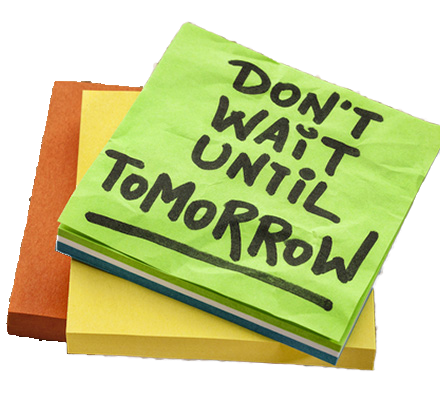 DON'T
WAiT
UNTiL
TOMORROW